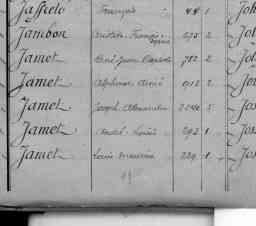 Jaffrelo François 48 1 Joh
Jambon Aristide François 595 2 Joh
Jamet René Jean Baptiste 782 2 Jo
Jamet Alphonse Aimé 912 2 Jo
Jamet Joseph Alexandre 2046 5 Jos
Jamet André Louis 292 1 Jos
Jamet Louis Maurice 229 1 Jos